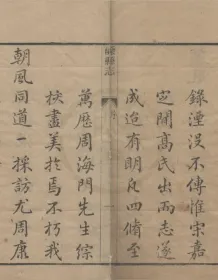 錄湮没不傳惟宋嘉
定開髙氏出而志遂
成迨有明凡四脩至
嵊縣志
萬歷周海門先生綜
核盡美於焉不朽我
朝風同道一採訪尤周康